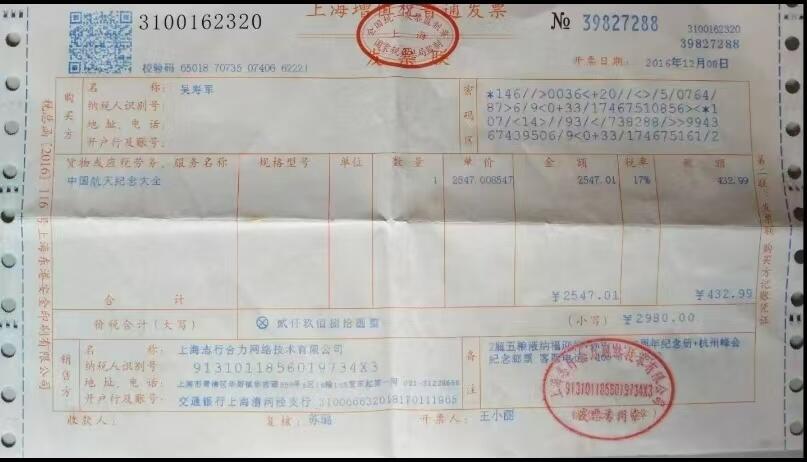 3100162320
上海增值税普通发票
全国统一发票监制章
上海
国家税务总局监制
发票联
№ 39827288
3100162320
39827288
校验码 65018 70735 07406 62221
开票日期: 2016年12月08日
税总函〔2016〕116号上海东港安全印刷有限公司
购买方
名 称: 吴寿军
纳税人识别号:
地 址、电 话:
开户行及账号:
密码区
*146//>0036<+20//<>/5/0764/
87>6/9<0+33/17467510856><*1
07/<14>//93/</738288/>>9943
67439506/9<0+33/174675161/2
货物或应税劳务、服务名称 规格型号 单位 数 量 单 价 金 额 税率 税 额
中国航天纪念大全 1 2547.008547 2547.01 17% 432.99
合 计 ¥2547.01 ¥432.99
价税合计(大写) ⊗ 贰仟玖佰捌拾圆整 (小写) ¥2980.00
第二联:发票联 购买方记账凭证
销售方
名 称: 上海志行合力网络技术有限公司
纳税人识别号: 9131011856019734X3
地 址、电 话:
开户行及账号: 交通银行上海漕河泾支行 310066632018170111965
备注
2瓶五粮液 周年纪念册+杭州峰会
纪念邮票
9131011856019734X3
收款人: 复核: 苏璐 开票人: 王小丽